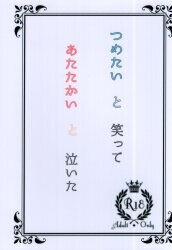 つめたい と 笑って
あたたかい と 泣いた
R18
Adult Only